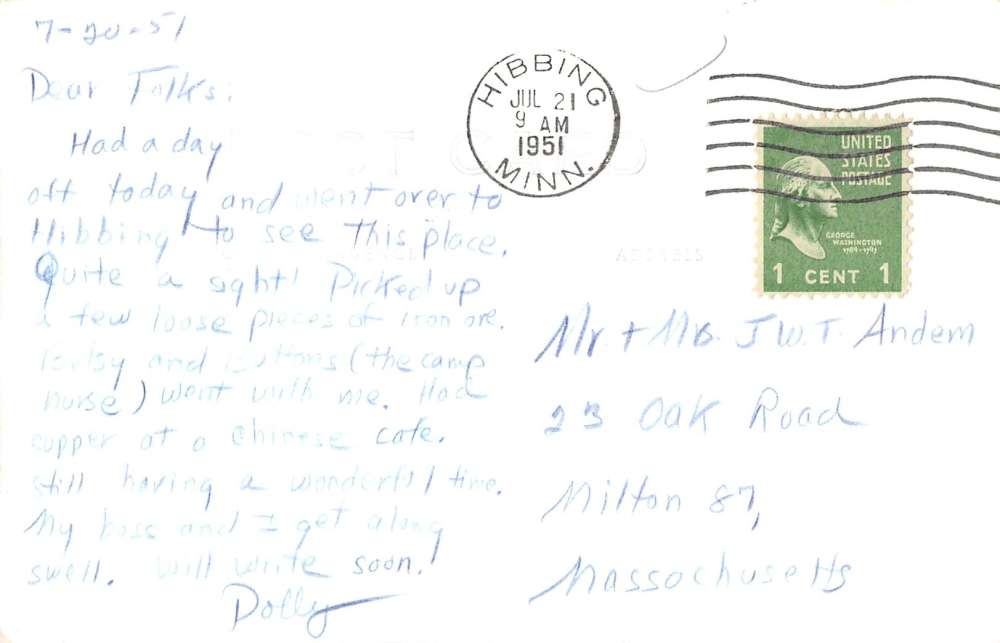 7-20-51
Dear Folks:
Had a day
off today and went over to
Hibbing to see this place.
Quite a sight! Picked up
a few loose pieces of iron ore.
and Buttons (the camp
nurse) went with me. Had
supper at a Chinese cafe.
Still having a wonderful time.
My boss and I get along
swell. Will write soon.
Dolly
HIBBING
JUL 21
9 AM
1951
MINN.
UNITED
STATES
POSTAGE
GEORGE
WASHINGTON
1789-1797
1 CENT 1
Mr. + Mrs. J.W.T. Andem
23 Oak Road
Milton 87,
Massachusetts